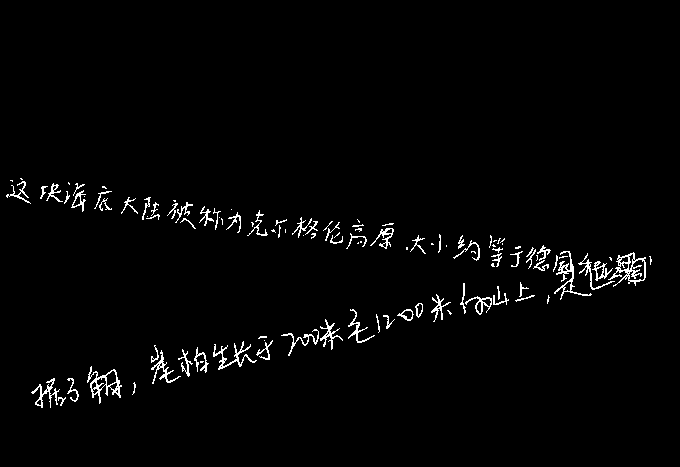 这块海底大陆被称为克尔格伦高原，大小约等于德国
据了解，崖柏生长于700米至1200米的山上，是